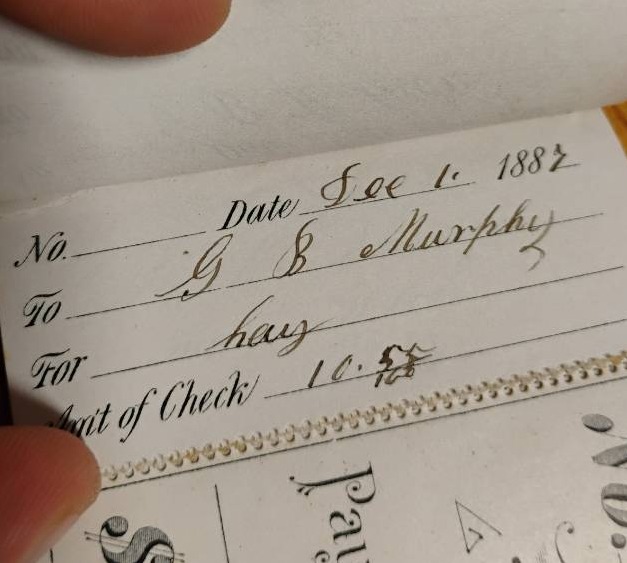 No. Date Dec 1. 1882
To G B Murphy
For hay
Am't of Check 10.55/100
$
Pay
No.